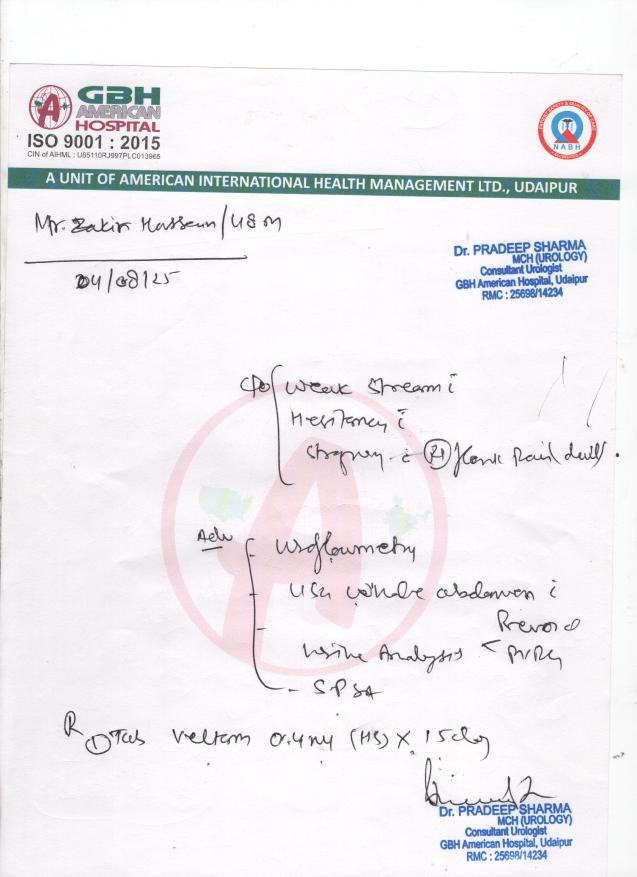 GBH
AMERICAN
HOSPITAL
ISO 9001 : 2015
CIN of AIHML : U85110RJ997PLC013965
NABH
A UNIT OF AMERICAN INTERNATIONAL HEALTH MANAGEMENT LTD., UDAIPUR
Mr. Zakir Hasseun/48 M
04/08/25
Dr. PRADEEP SHARMA
MCH (UROLOGY)
Consultant Urologist
GBH American Hospital, Udaipur
RMC : 25698/14234
C/o Weak Stream c
Hesitancy c
c Rt flank Pain dull.
Adv - Uroflowmetry
- USG whole abdomen c
Prevoid
- Urine Analysis PVRU
- SPSA
R
1 Tab Veltam 0.4mg (HS) X 15day
Dr. PRADEEP SHARMA
MCH (UROLOGY)
Consultant Urologist
GBH American Hospital, Udaipur
RMC : 25698/14234